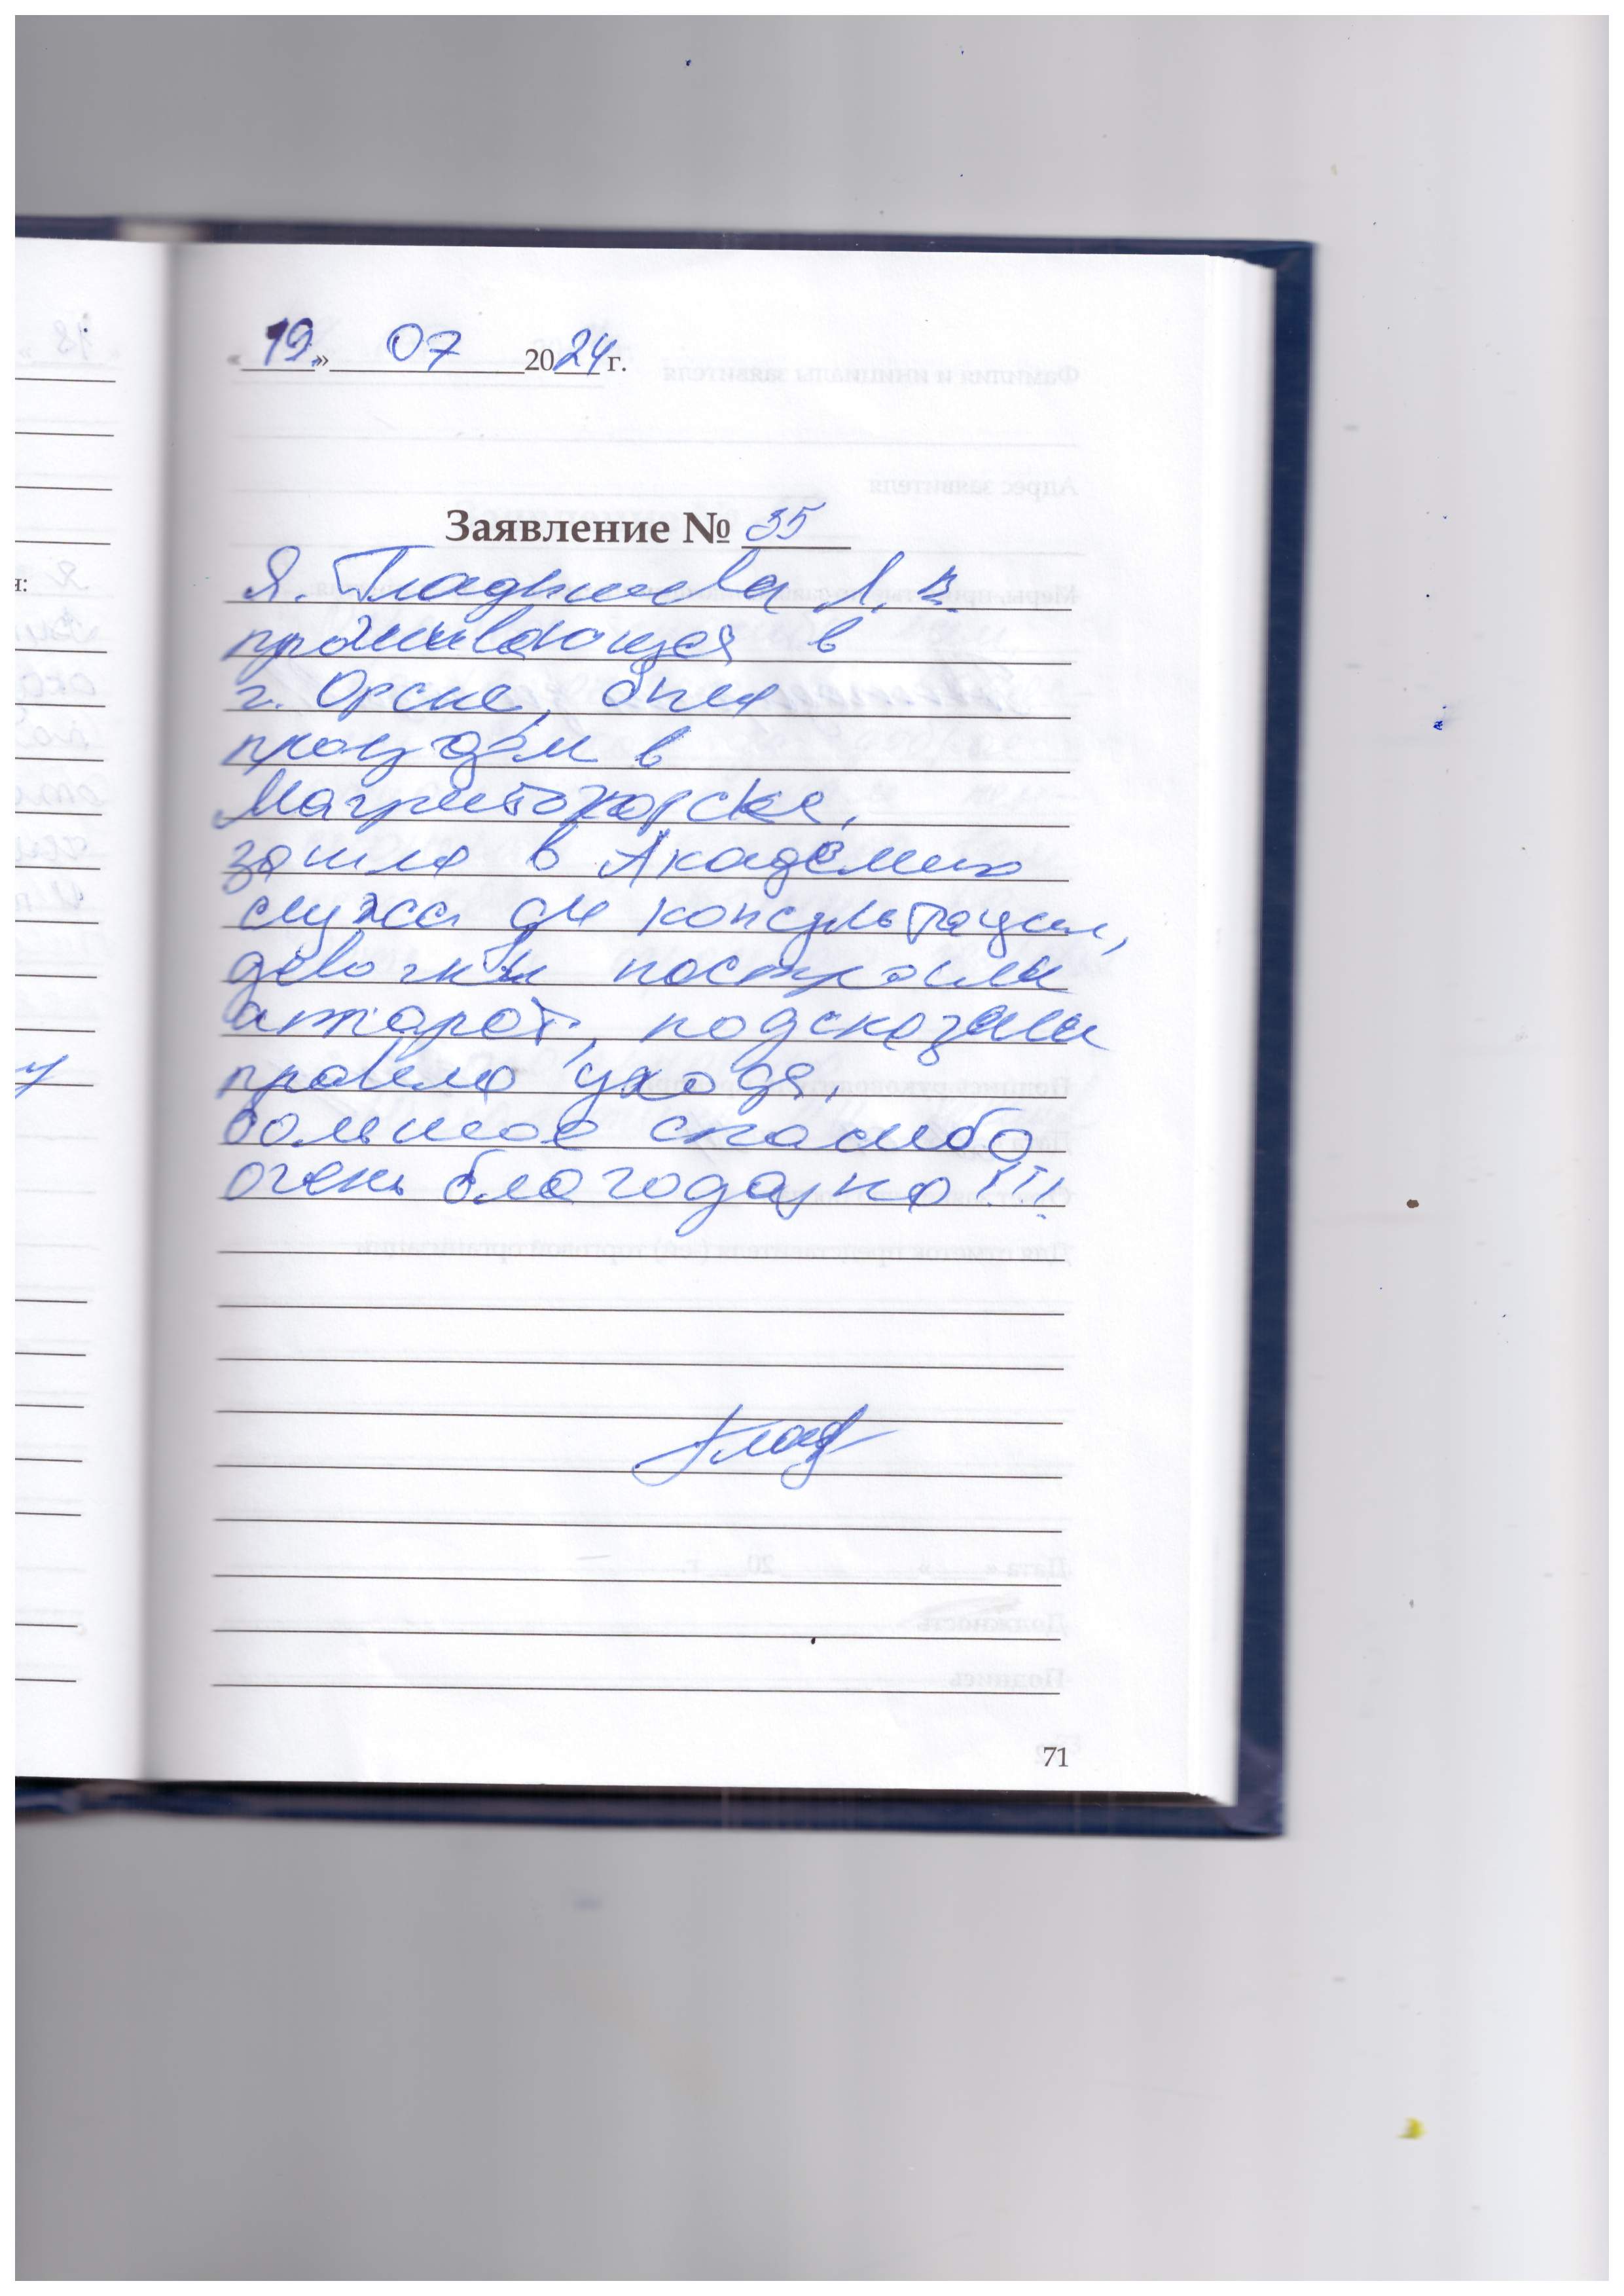 «19.» 07 2024 г.
Заявление № 35
Я. Гладышева Л. В.
проживающая в
г. Орске, была
проездом в
Магнитогорске,
зашла в Академию
слуха для консультации,
девочки настроили
аппарат, подсказали
правила ухода,
большое спасибо
очень благодарна!!!
Глад
71